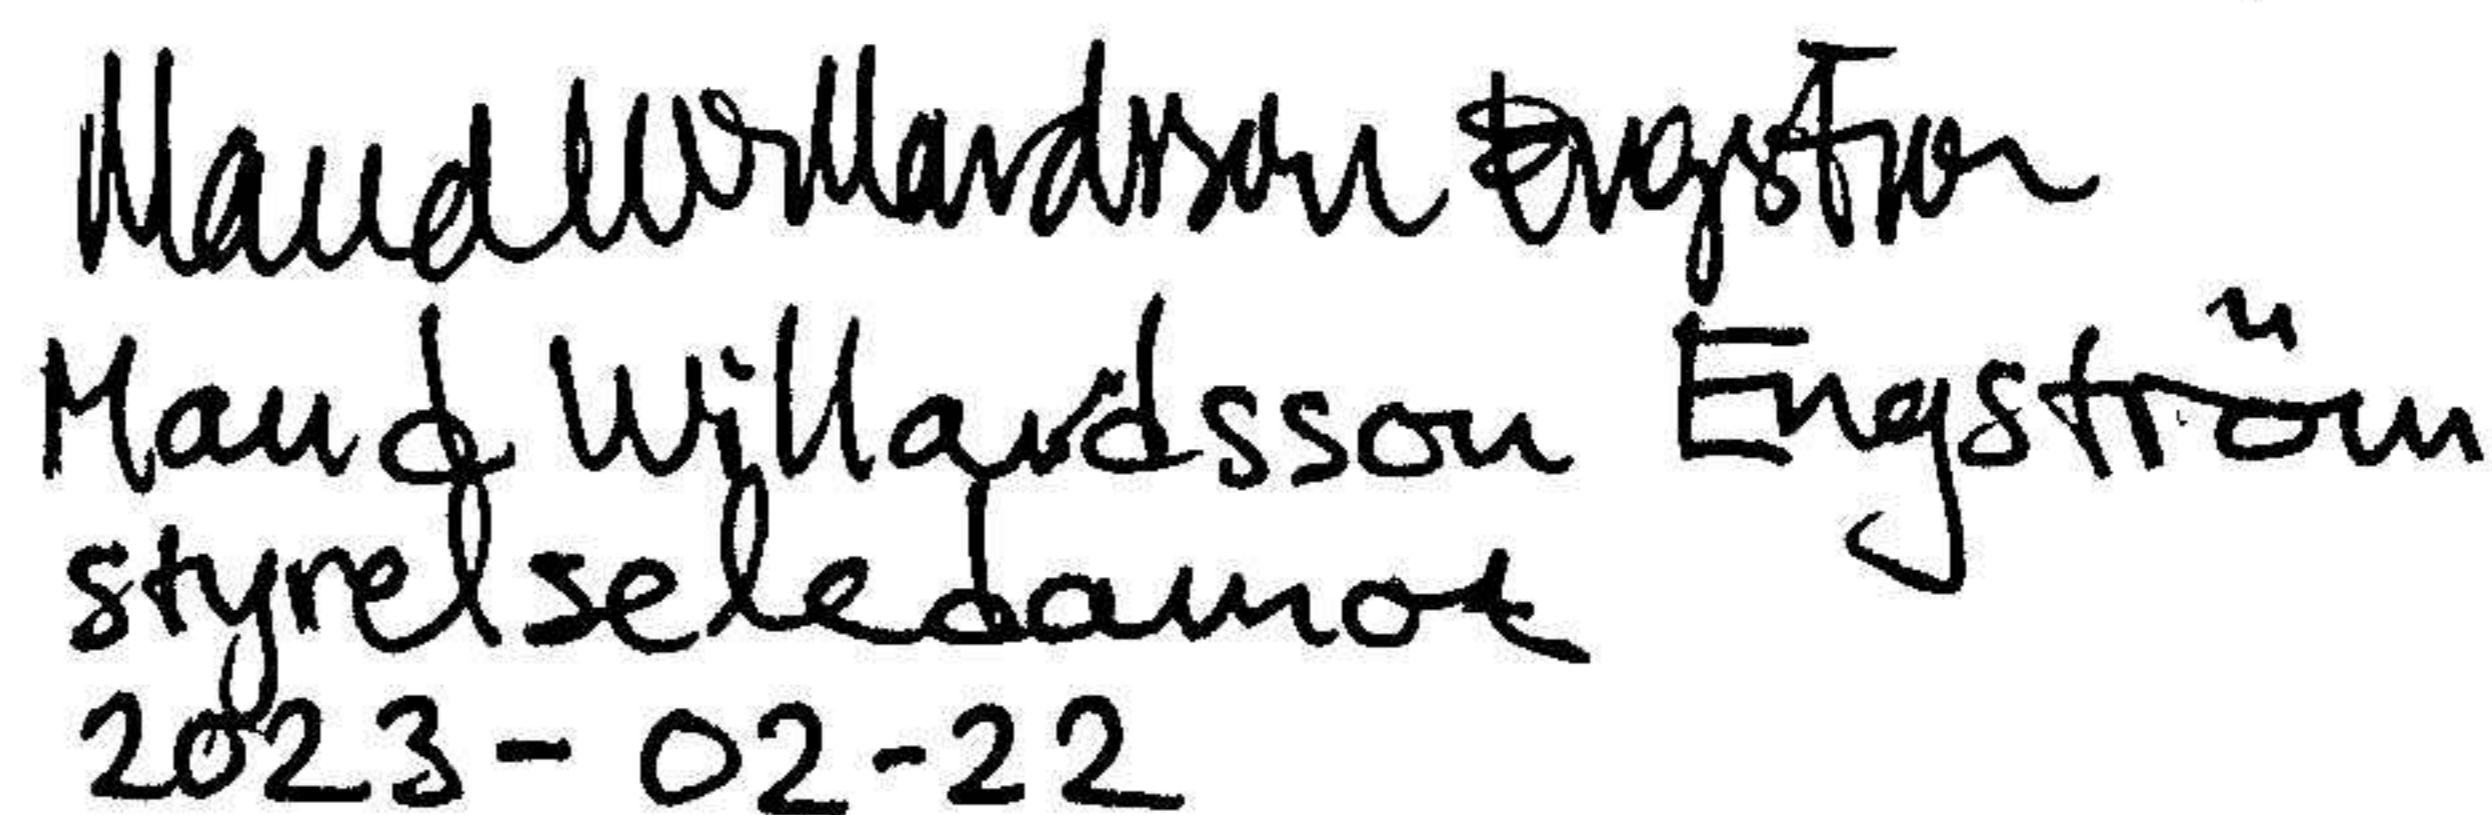 Maud Willardsson Engström
Maud Willardsson Engström
styrelseledamot
2023-02-22